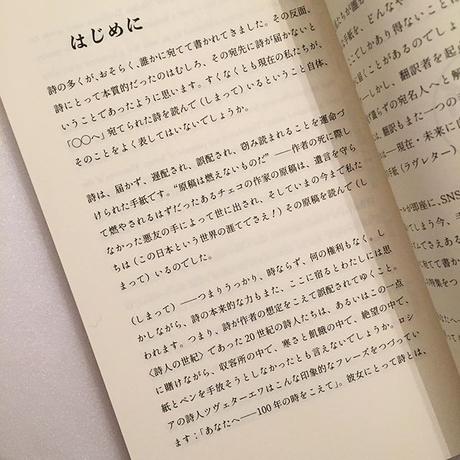 はじめに
詩の多くが、おそらく、誰かに宛てて書かれてきました。その反面、
詩にとって本質的だったのはむしろ、その宛先に詩が届かないと
いうことであったように思います。すくなくとも現在の私たちが、
「〇〇へ」宛てられた詩を読んで（しまって）いるということ自体、
そのことをよく表してはいないでしょうか。
詩は、届かず、遅配され、誤配され、窃み読まれることを運命づ
けられた手紙です。“原稿は燃えないものだ”——作者の死に際し
て燃やされるはずだったあるチェコの作家の原稿は、遺言を守ら
なかった悪友の手によって世に出され、そしていまの今まで私た
ちは（この日本という世界の涯てでさえ！）その原稿を読んで（し
まって）いるのでした。
（しまって）——つまりうっかり、時ならず、何の権利もなく。し
かしながら、詩の本来的な力もまた、ここに宿るとわたしには思
われます。つまり、詩が作者の想定をこえて誤配されてゆくこと。
〈詩人の世紀〉であった20世紀の詩人たちは、あるいはこの一点
に賭けながら、収容所の中で、寒さと飢餓の中で、絶望の中で、
紙とペンを手放そうとしなかったとも言えないでしょうか。ロシ
アの詩人ツヴェターエワはこんな印象的なフレーズをつづってい
ます：「あなたへ——100年の時をこえて」。彼女にとって詩とは、
ちが誰か
な手紙を、どんなや
こでしかあり得ないことに
届くことがあるのでしょ
か——しかし、翻訳者を起点
限りの宛名人へと解
は、翻訳もまた一つの
——現在・未来に
紙（ラヴレター）
が即座に、SNS
しまう今、手
たえてさえあ
て書か
特集